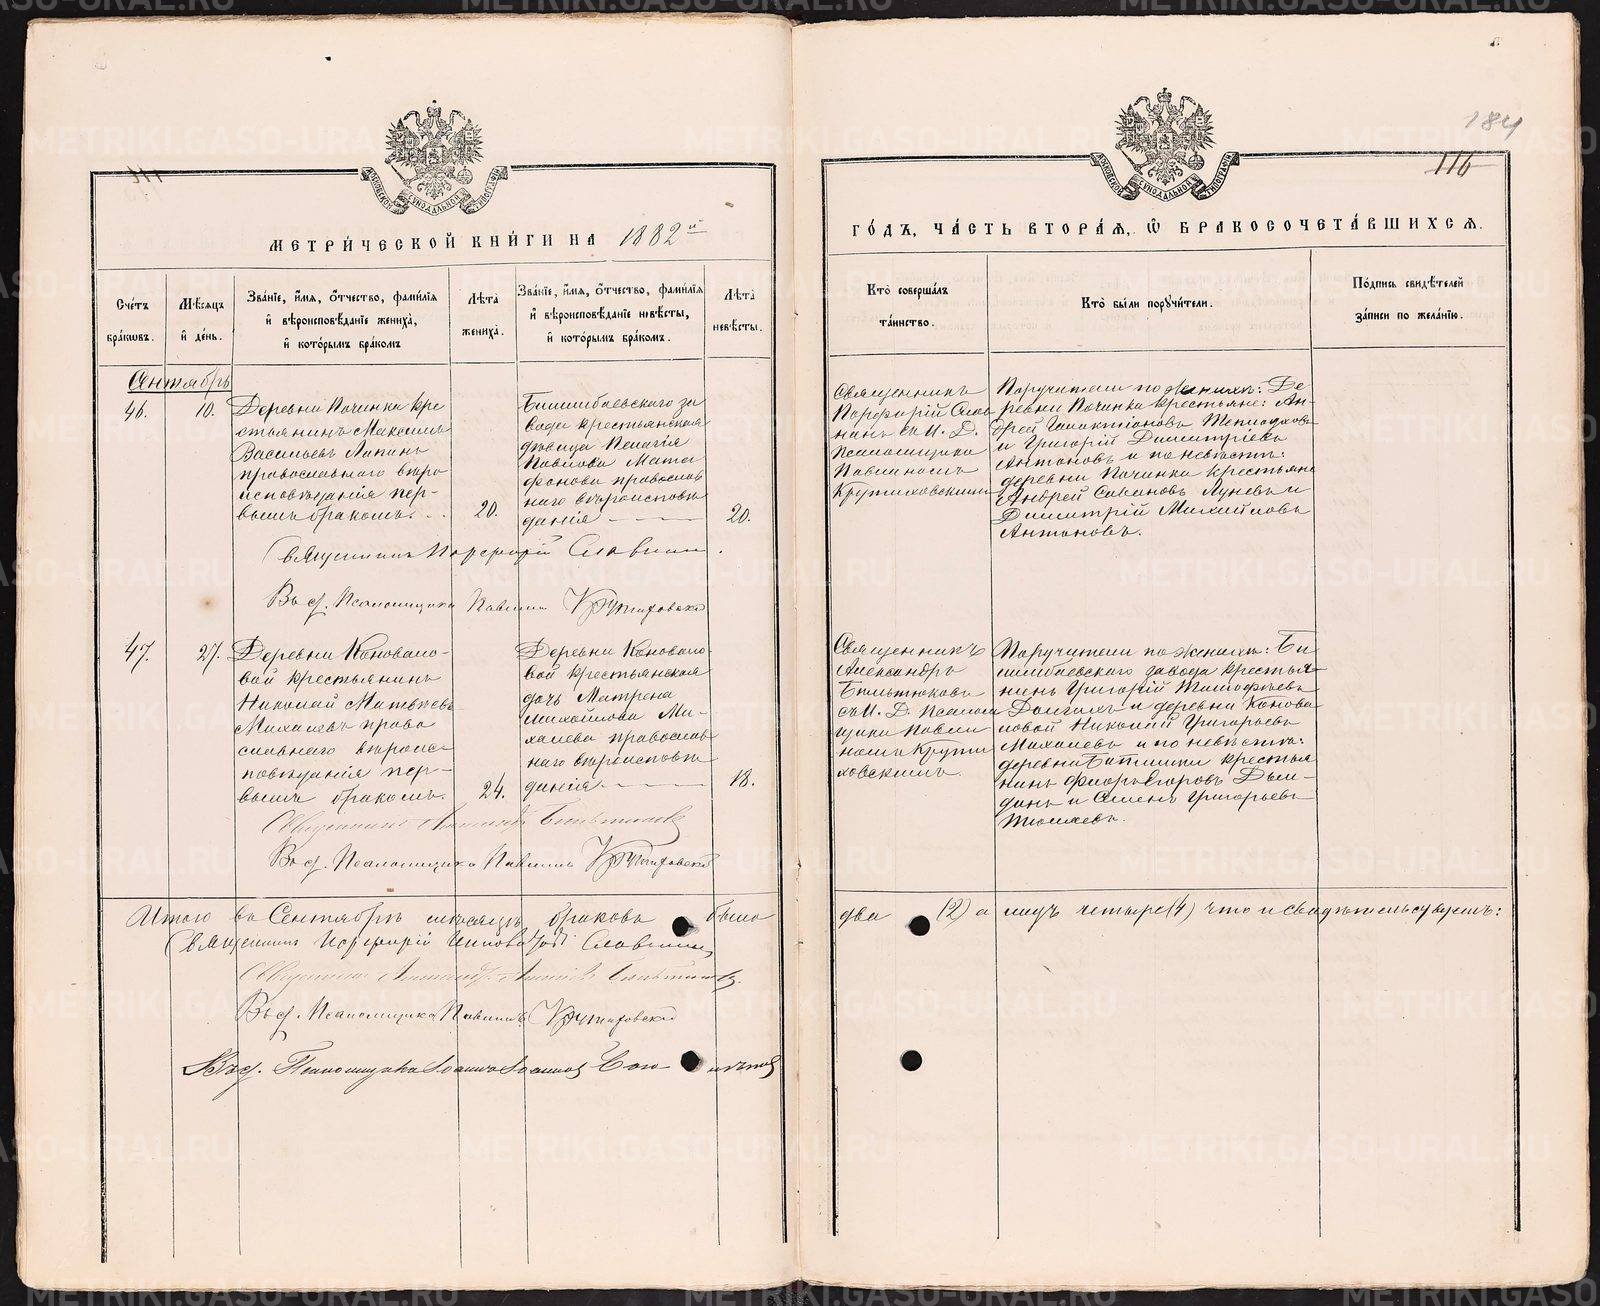 184
116
МОСКОВСКОЙ СѴНОДАЛЬНОЙ ТИПОГРАФІИ
МОСКОВСКОЙ СѴНОДАЛЬНОЙ ТИПОГРАФІИ
МЕТРИ́ЧЕСКОЙ КНИ́ГИ НА 1882й
ГО́ДЪ, ЧА́СТЬ ВТОРА́Я, Ѡ БРАКОСОЧЕТА́ВШИХСЯ.
Сче́тъ бра́кѡвъ.
Мѣ́сяцъ и҆ де́нь.
Зва́нїе, и҆́мѧ, ѻ҆́тчество, фами́лїѧ и҆ вѣроисповѣ́данїе жениха̀, и҆ кото́рымъ бра́комъ
Лѣ́та жениха̀.
Зва́нїе, и҆́мѧ, ѻ҆́тчество, фами́лїѧ и҆ вѣроисповѣ́данїе невѣ́сты, и҆ кото́рымъ бра́комъ.
Лѣ́та невѣ́сты.
Кто̀ соверша́лъ та́инство.
Кто̀ бы́ли порꙋчи́тели.
По́дпись свидѣ́телей за́писи по жела́нїю.
Сентябрь
46.
10.
Деревни Починка кре
стьянинъ Максимъ
Васильевъ Лапинъ
православнаго вѣро
исповѣданія пер-
вымъ бракомъ. . .
20.
Билимбаевскаго за
вода крестьянская
дѣвица Пелагія
Павлова Мата
фонова православ
наго вѣроисповѣ
данія
20.
Священникъ
Порфирій Слав
нинъ съ И. Д.
Псаломщика
Павлиномъ
Крутиховскимъ
Поручители по женихѣ: Де
ревни Починка крестьяне: Ан-
дрей Галактіоновъ
и Григорій Димитріевъ
Антоновъ и по невѣстѣ:
деревни Починка крестьяне
Андрей Савиновъ Луневъ и
Димитрій Михайловъ
Антоновъ.
Священникъ Порфирій Славнинъ.
И. д. Псаломщика Павлинъ Крутиховскій
47.
27.
Деревни Коновало-
вой крестьянинъ
Николай Матвѣевъ
Михалевъ право
славнаго вѣроис-
повѣданія пер-
вымъ бракомъ.
24.
Деревни Коновало-
вой крестьянская
дочь Матрена
Михайлова Ми-
халева православ
наго вѣроисповѣ
данія
18.
Священникъ
Александръ
Бильтюковъ
съ И. Д. Псалом
щика Павли
номъ Крути
ховскимъ.
Поручители по женихѣ: Би
лимбаевскаго завода крестья-
нинъ Григорій Тимофѣевъ
Долгихъ и деревни Конова
ловой Николай Григорьевъ
Михалевъ и по невѣстѣ:
деревни Битимки крестья
нинъ Федоръ Егоровъ
и Семенъ Григорьевъ
Священникъ Александръ Бильтюковъ
И. д. Псаломщика Павлинъ Крутиховскій
Итого въ Сентябрѣ мѣсяцѣ браковъ было два (2) а лицъ четыре (4) что и свидѣтельствуемъ:
Священникъ Порфирій Славнинъ
Священникъ Александръ Бильтюковъ.
И. д. Псаломщика Павлинъ Крутиховскій
И. д. Псаломщика Іоаннъ Іоанновъ
METRIKI.GASO-URAL.RU